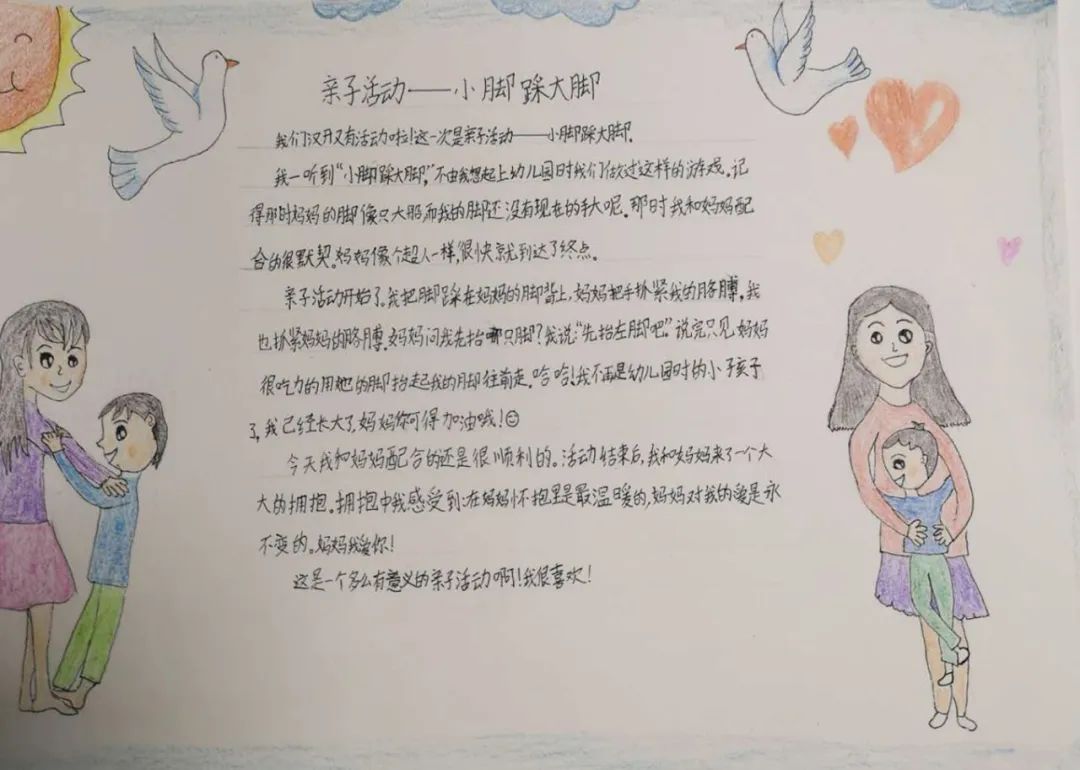 亲子活动——小脚踩大脚
我们汉开又有活动啦!这一次是亲子活动——小脚踩大脚.
我一听到“小脚踩大脚”,不由我想起上幼儿园时我们做过这样的游戏。记
得那时妈妈的脚像只大船而我的脚还没有现在的手大呢.那时我和妈妈配
合的很默契。妈妈像个超人一样,很快就到达了终点。
亲子活动开始了。我把脚踩在妈妈的脚背上,妈妈把手抓紧我的胳膊,我
也抓紧妈妈的胳膊。妈妈问我先抬哪只脚?我说:“先抬左脚吧”.说完只见妈妈
很吃力的用她的脚抬起我的脚往前走。哈哈!我不再是幼儿园时的小孩子
了,我已经长大了,妈妈你可得加油哦!☺
今天我和妈妈配合的还是很顺利的。活动结束后,我和妈妈来了一个大
大的拥抱。拥抱中我感受到:在妈妈怀抱里是最温暖的,妈妈对我的爱是永
不变的。妈妈我爱你!
这是一个多么有意义的亲子活动啊!我很喜欢!